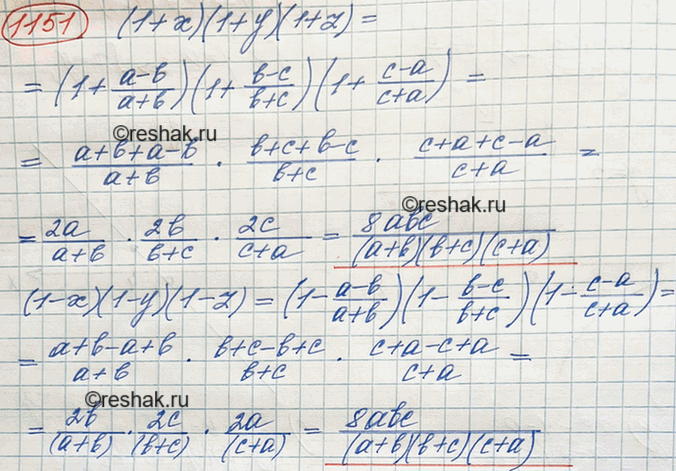 1151 (1+x)(1+y)(1+z) =
= (1 + (a-b)/(a+b)) (1 + (b-c)/(b+c)) (1 + (c-a)/(c+a)) =
©reshak.ru
= (a+b+a-b)/(a+b) · (b+c+b-c)/(b+c) · (c+a+c-a)/(c+a) =
©reshak.ru
= 2a/(a+b) · 2b/(b+c) · 2c/(c+a) = 8abc/((a+b)(b+c)(c+a))
(1-x)(1-y)(1-z) = (1 - (a-b)/(a+b)) (1 - (b-c)/(b+c)) (1 - (c-a)/(c+a)) =
= (a+b-a+b)/(a+b) · (b+c-b+c)/(b+c) · (c+a-c+a)/(c+a) =
©reshak.ru
= 2b/(a+b) · 2c/(b+c) · 2a/(c+a) = 8abc/((a+b)(b+c)(c+a))